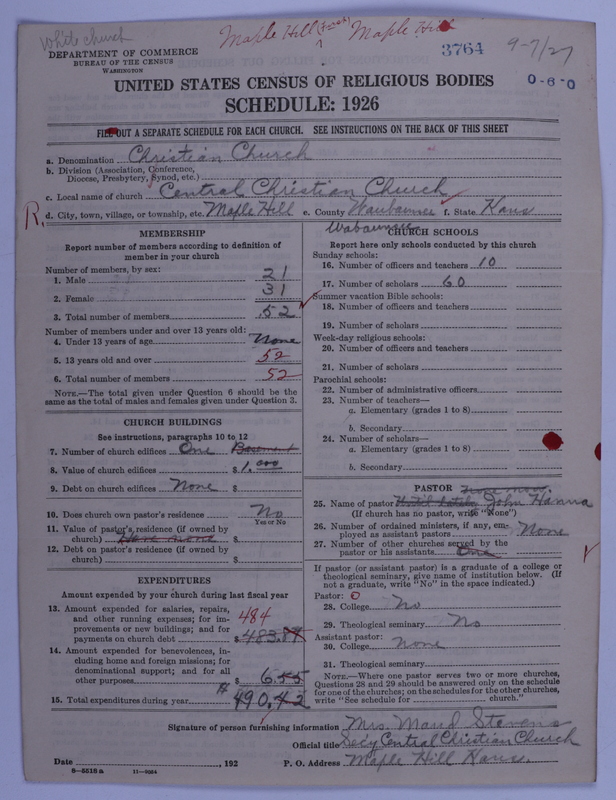 White church
Maple Hill (Maple Hill
3764 9-7/27
DEPARTMENT OF COMMERCE
BUREAU OF THE CENSUS
WASHINGTON
0-6-0
UNITED STATES CENSUS OF RELIGIOUS BODIES
SCHEDULE: 1926
FILL OUT A SEPARATE SCHEDULE FOR EACH CHURCH. SEE INSTRUCTIONS ON THE BACK OF THIS SHEET
a. Denomination Christian Church
b. Division (Association, Conference,
Diocese, Presbytery, Synod, etc.)
c. Local name of church Central Christian Church
R. d. City, town, village, or township, etc. Maple Hill e. County Waubaunsee f. State Kans
Wabaunsee
MEMBERSHIP
Report number of members according to definition of
member in your church
Number of members, by sex:
1. Male 21
2. Female 31
3. Total number of members 52
Number of members under and over 13 years old:
4. Under 13 years of age None
5. 13 years old and over 52
6. Total number of members 52
NOTE.—The total given under Question 6 should be the
same as the total of males and females given under Question 3.
CHURCH BUILDINGS
See instructions, paragraphs 10 to 12
7. Number of church edifices One Basement
8. Value of church edifices $1.000
9. Debt on church edifices None $
10. Does church own pastor's residence No
Yes or No
11. Value of pastor's residence (if owned by
church) Have none $
12. Debt on pastor's residence (if owned by
church) $
EXPENDITURES
Amount expended by your church during last fiscal year
13. Amount expended for salaries, repairs,
and other running expenses; for im-
provements or new buildings; and for
payments on church debt 484 $483.87
14. Amount expended for benevolences, in-
cluding home and foreign missions; for
denominational support; and for all
other purposes $ 6.55
15. Total expenditures during year $490.42
CHURCH SCHOOLS
Report here only schools conducted by this church
Sunday schools:
16. Number of officers and teachers 10
17. Number of scholars 60
Summer vacation Bible schools:
18. Number of officers and teachers
19. Number of scholars
Week-day religious schools:
20. Number of officers and teachers
21. Number of scholars
Parochial schools:
22. Number of administrative officers
23. Number of teachers—
a. Elementary (grades 1 to 8)
b. Secondary
24. Number of scholars—
a. Elementary (grades 1 to 8)
b. Secondary
PASTOR
25. Name of pastor John Hanna
(If church has no pastor, write "None")
26. Number of ordained ministers, if any, em-
ployed as assistant pastors None
27. Number of other churches served by the
pastor or his assistants One
If pastor (or assistant pastor) is a graduate of a college or
theological seminary, give name of institution below. (If
not a graduate, write "No" in the space indicated.)
Pastor:
28. College No
29. Theological seminary No
Assistant pastor:
30. College None
31. Theological seminary
NOTE.—Where one pastor serves two or more churches,
Questions 28 and 29 should be answered only on the schedule
for one of the churches; on the schedules for the other churches,
write "See schedule for church."
Signature of person furnishing information Mrs. Maud Stevens
Official title Sec'y Central Christian Church
Date , 192 P. O. Address Maple Hill Kans.
8—5518 a 11—9024